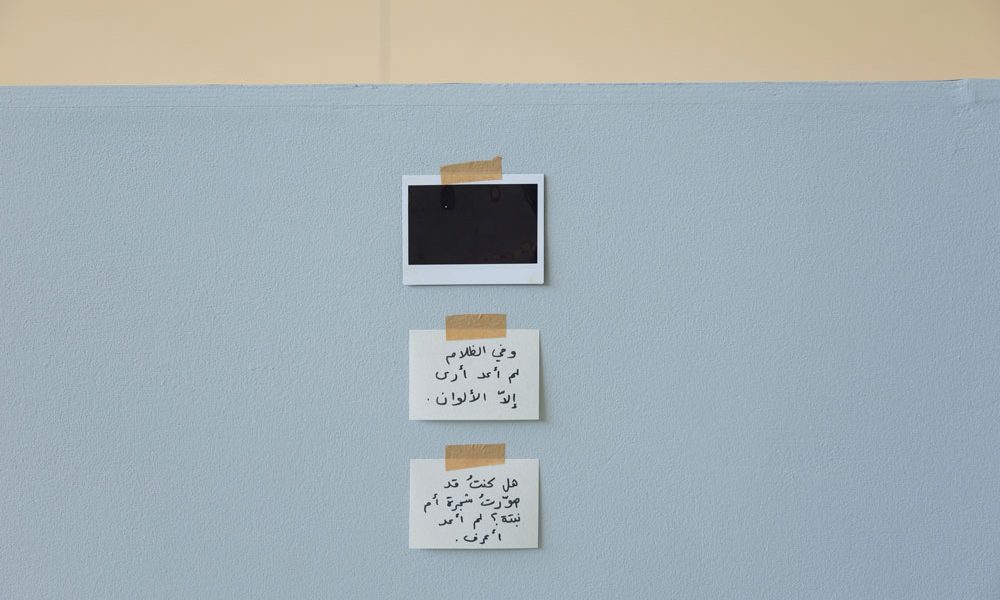 وفي الظلام
لم أعد أرى
إلاّ الألوان.
هل كنتُ قد
صوّرتُ شجرة أم
نبتة؟ لم أعد
أعرف.